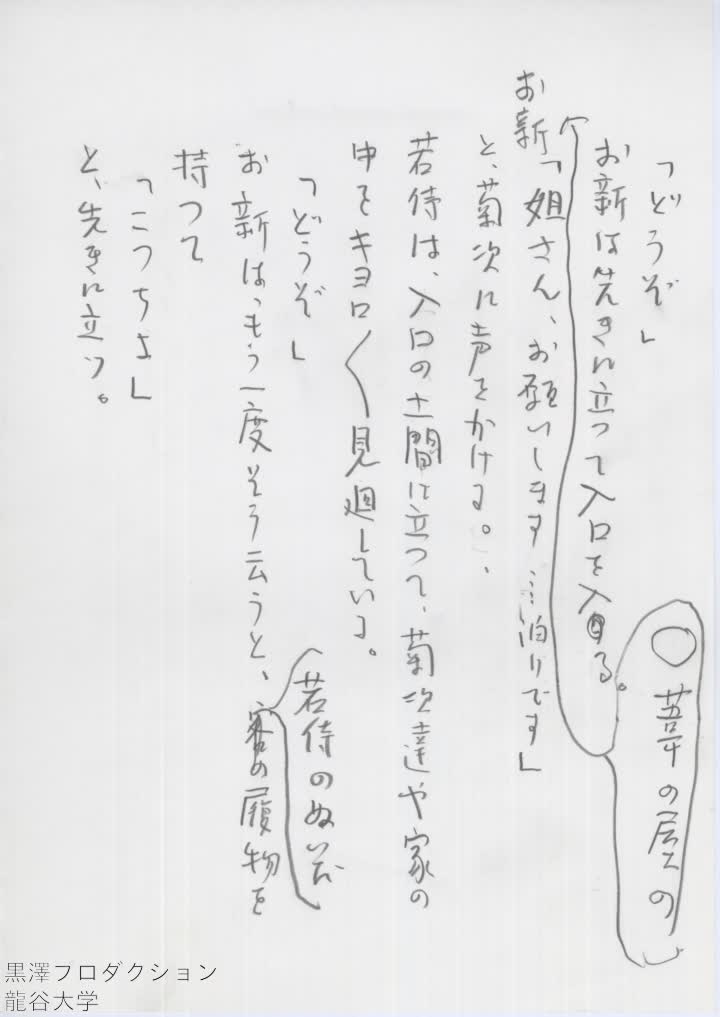 「どうぞ」
お新は先きに立つて入口を入る。
○葦の屋の
お新「姐さん、お願いします……泊りです」
と、菊次に声をかける。
若侍は、入口の土間に立つて、菊次達や家の
中をキヨロ〱見廻している。
「どうぞ」
お新は、もう一度そう云うと、客の履物を
若侍のぬいだ
持つて
「こつちよ」
と、先きに立つ。
黒澤プロダクション
龍谷大学